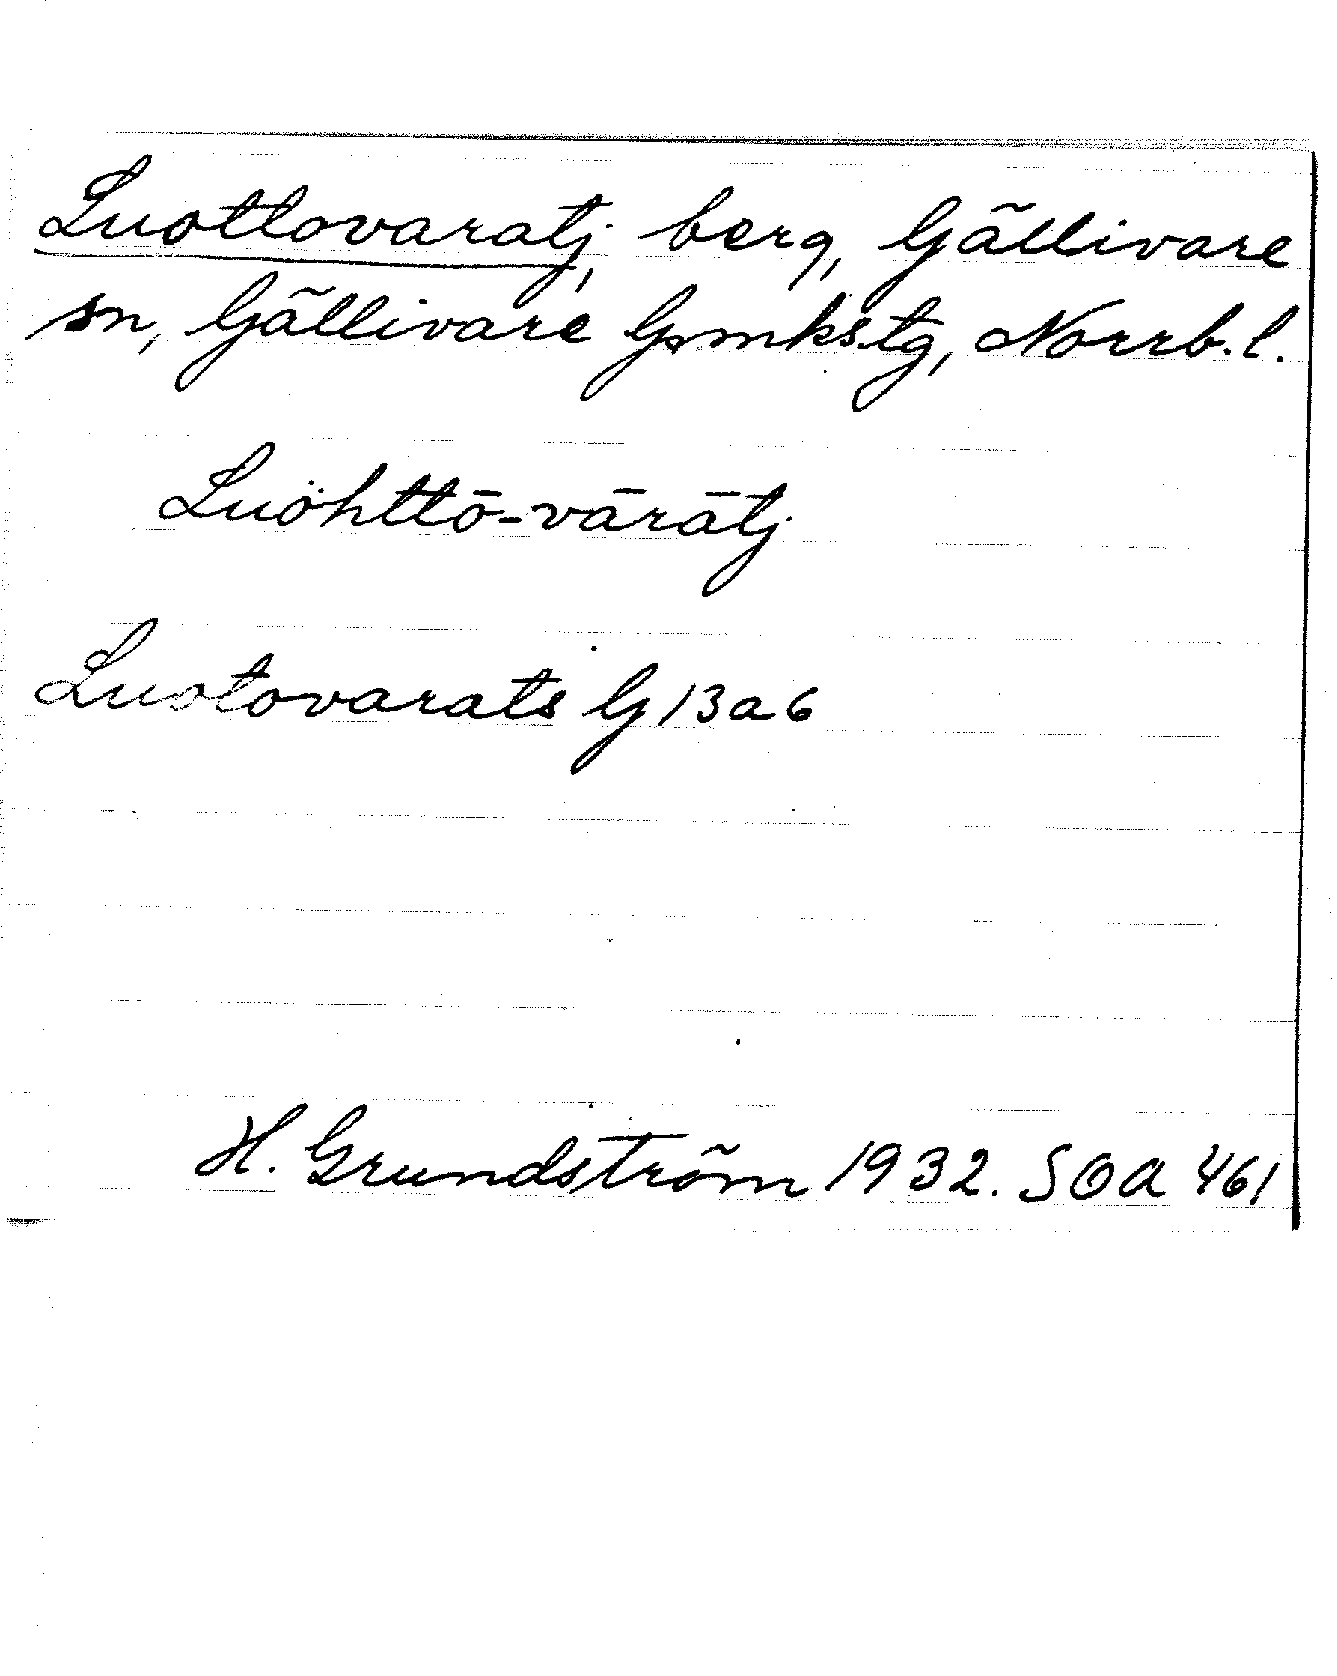 Luottovaratj, berg, Gällivare
sn, Gällivare Gmkstg, Norrb. l.
Luöhttō-vārātj
Luotovarats G 13 a 6
H. Grundström 1932. SOA 461